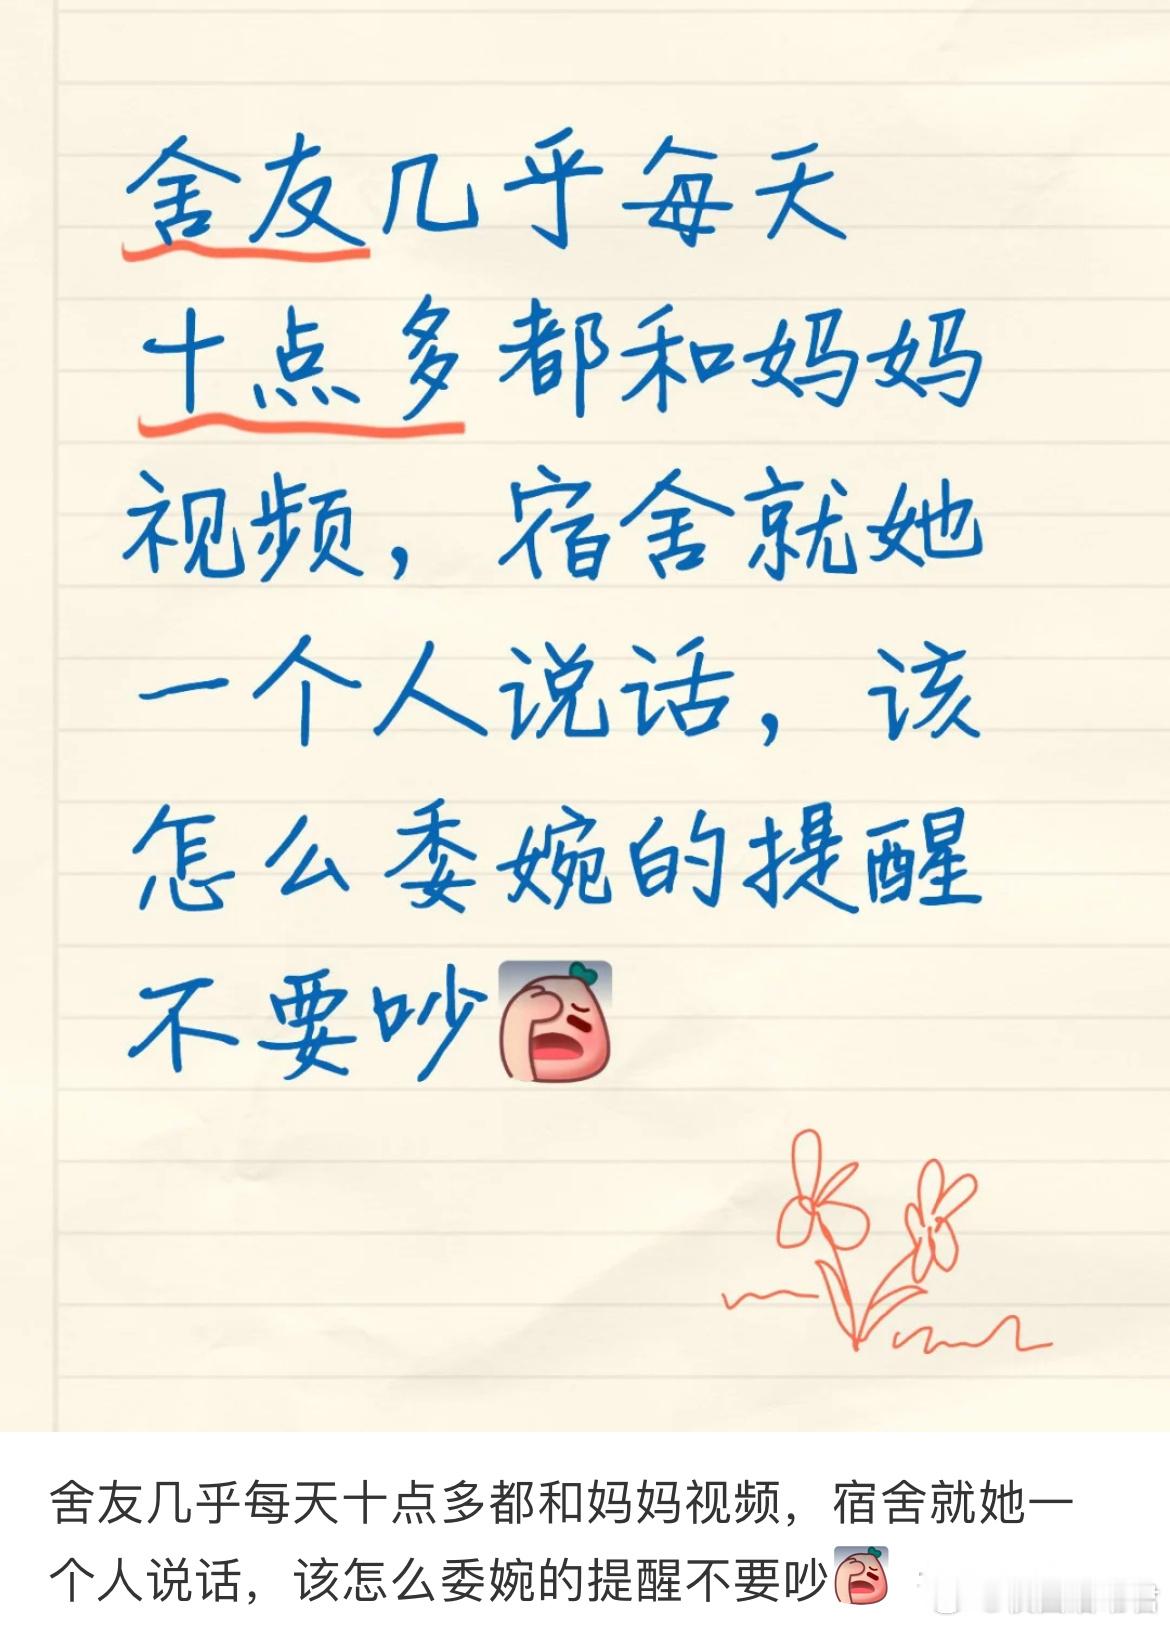 舍友几乎每天
十点多都和妈妈
视频，宿舍就她
一个人说话，该
怎么委婉的提醒
不要吵
舍友几乎每天十点多都和妈妈视频，宿舍就她一
个人说话，该怎么委婉的提醒不要吵